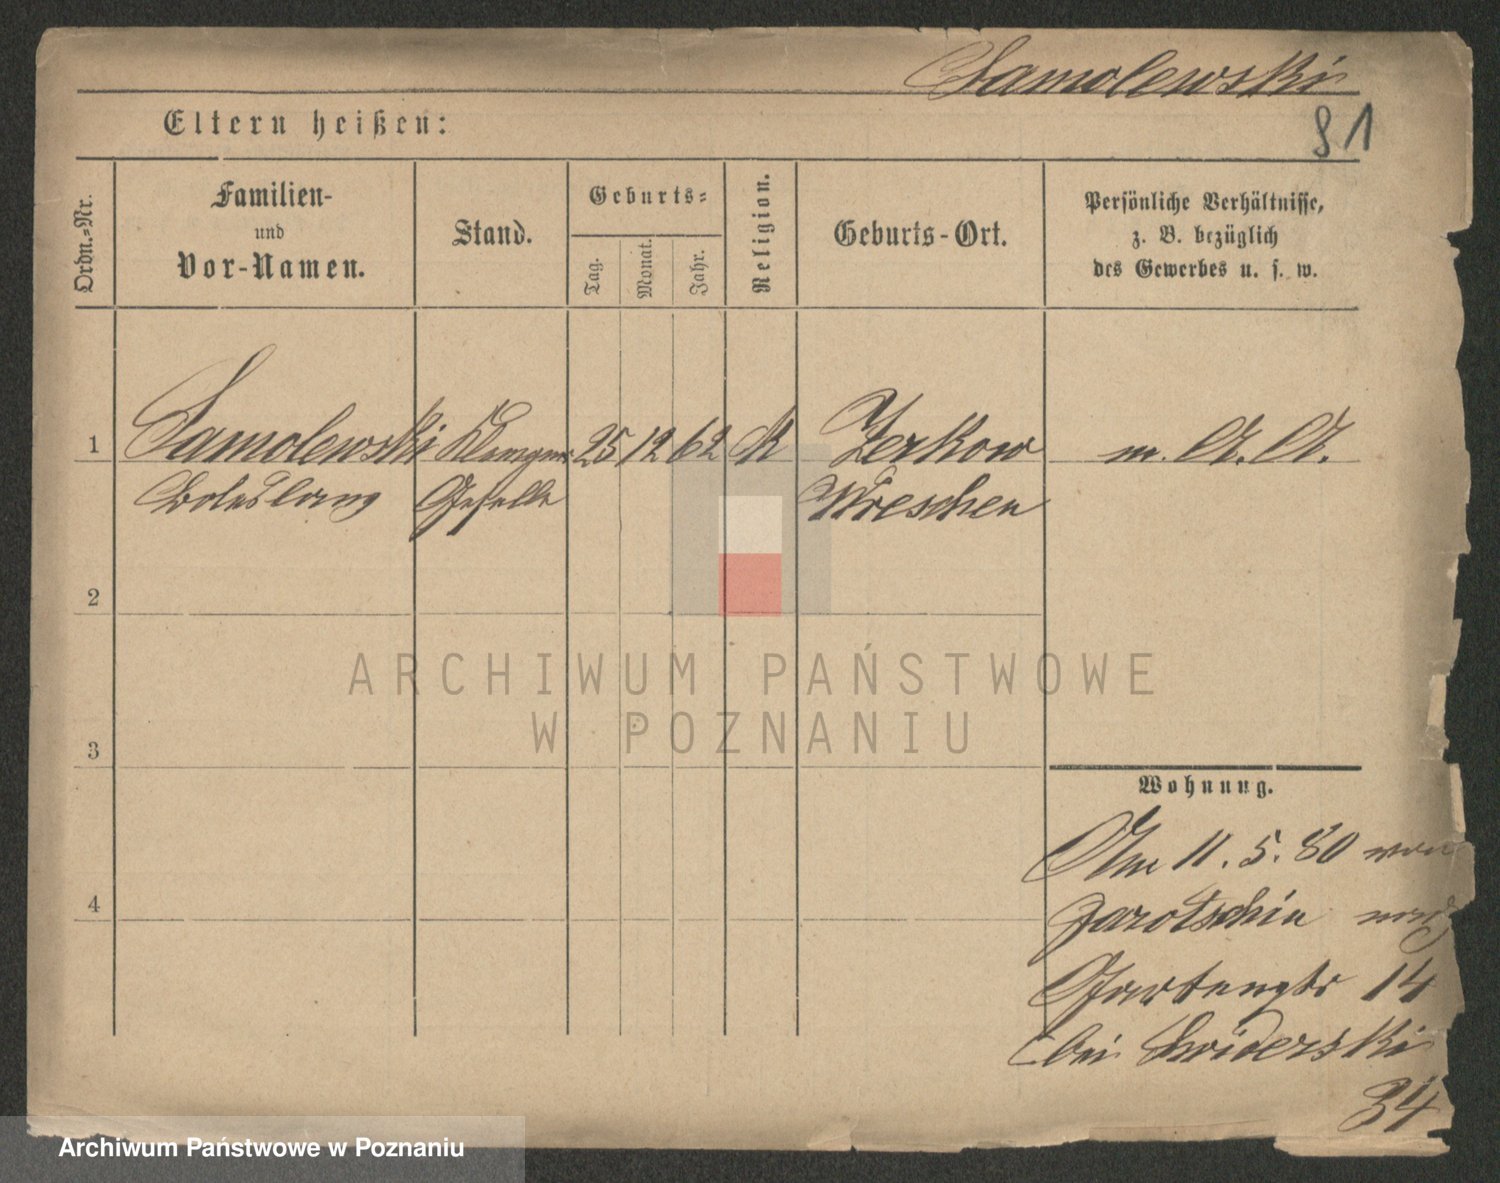 Samolewski
81
Eltern heißen:
Ordn.-Nr.
Familien-
und
Vor-Namen.
Stand.
Geburts-
Tag.
Monat.
Jahr.
Religion.
Geburts-Ort.
Persönliche Verhältnisse,
z. B. bezüglich
des Gewerbes u. s. w.
1 Samolewski 25 12 62 K Zerkow m. A. A.
Boleslaus Geselle Wreschen
2
ARCHIWUM PAŃSTWOWE
W POZNANIU
3
Wohnung.
Am 11. 5. 80 von
4
Jarotschin nach
Gartenstr 14
bei Swiderski
34
Archiwum Państwowe w Poznaniu